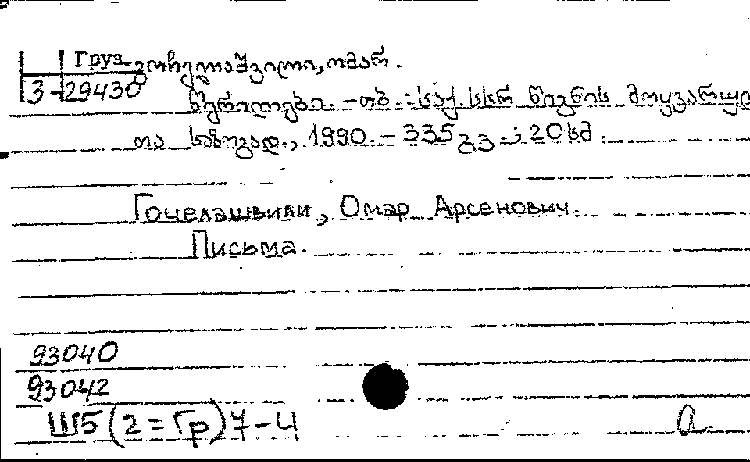 Груз.
3-29430
გოჩელაშვილი, ომარ.
წერილები. - თბ.: საქ. სსრ წიგნის მოყვარულ
თა საზოგად., 1990. - 335 გვ.; 20 სმ.
Гочелашвили, Омар Арсенович.
Письма.
93040
93042
Ш5(2=Гр)7-4
а